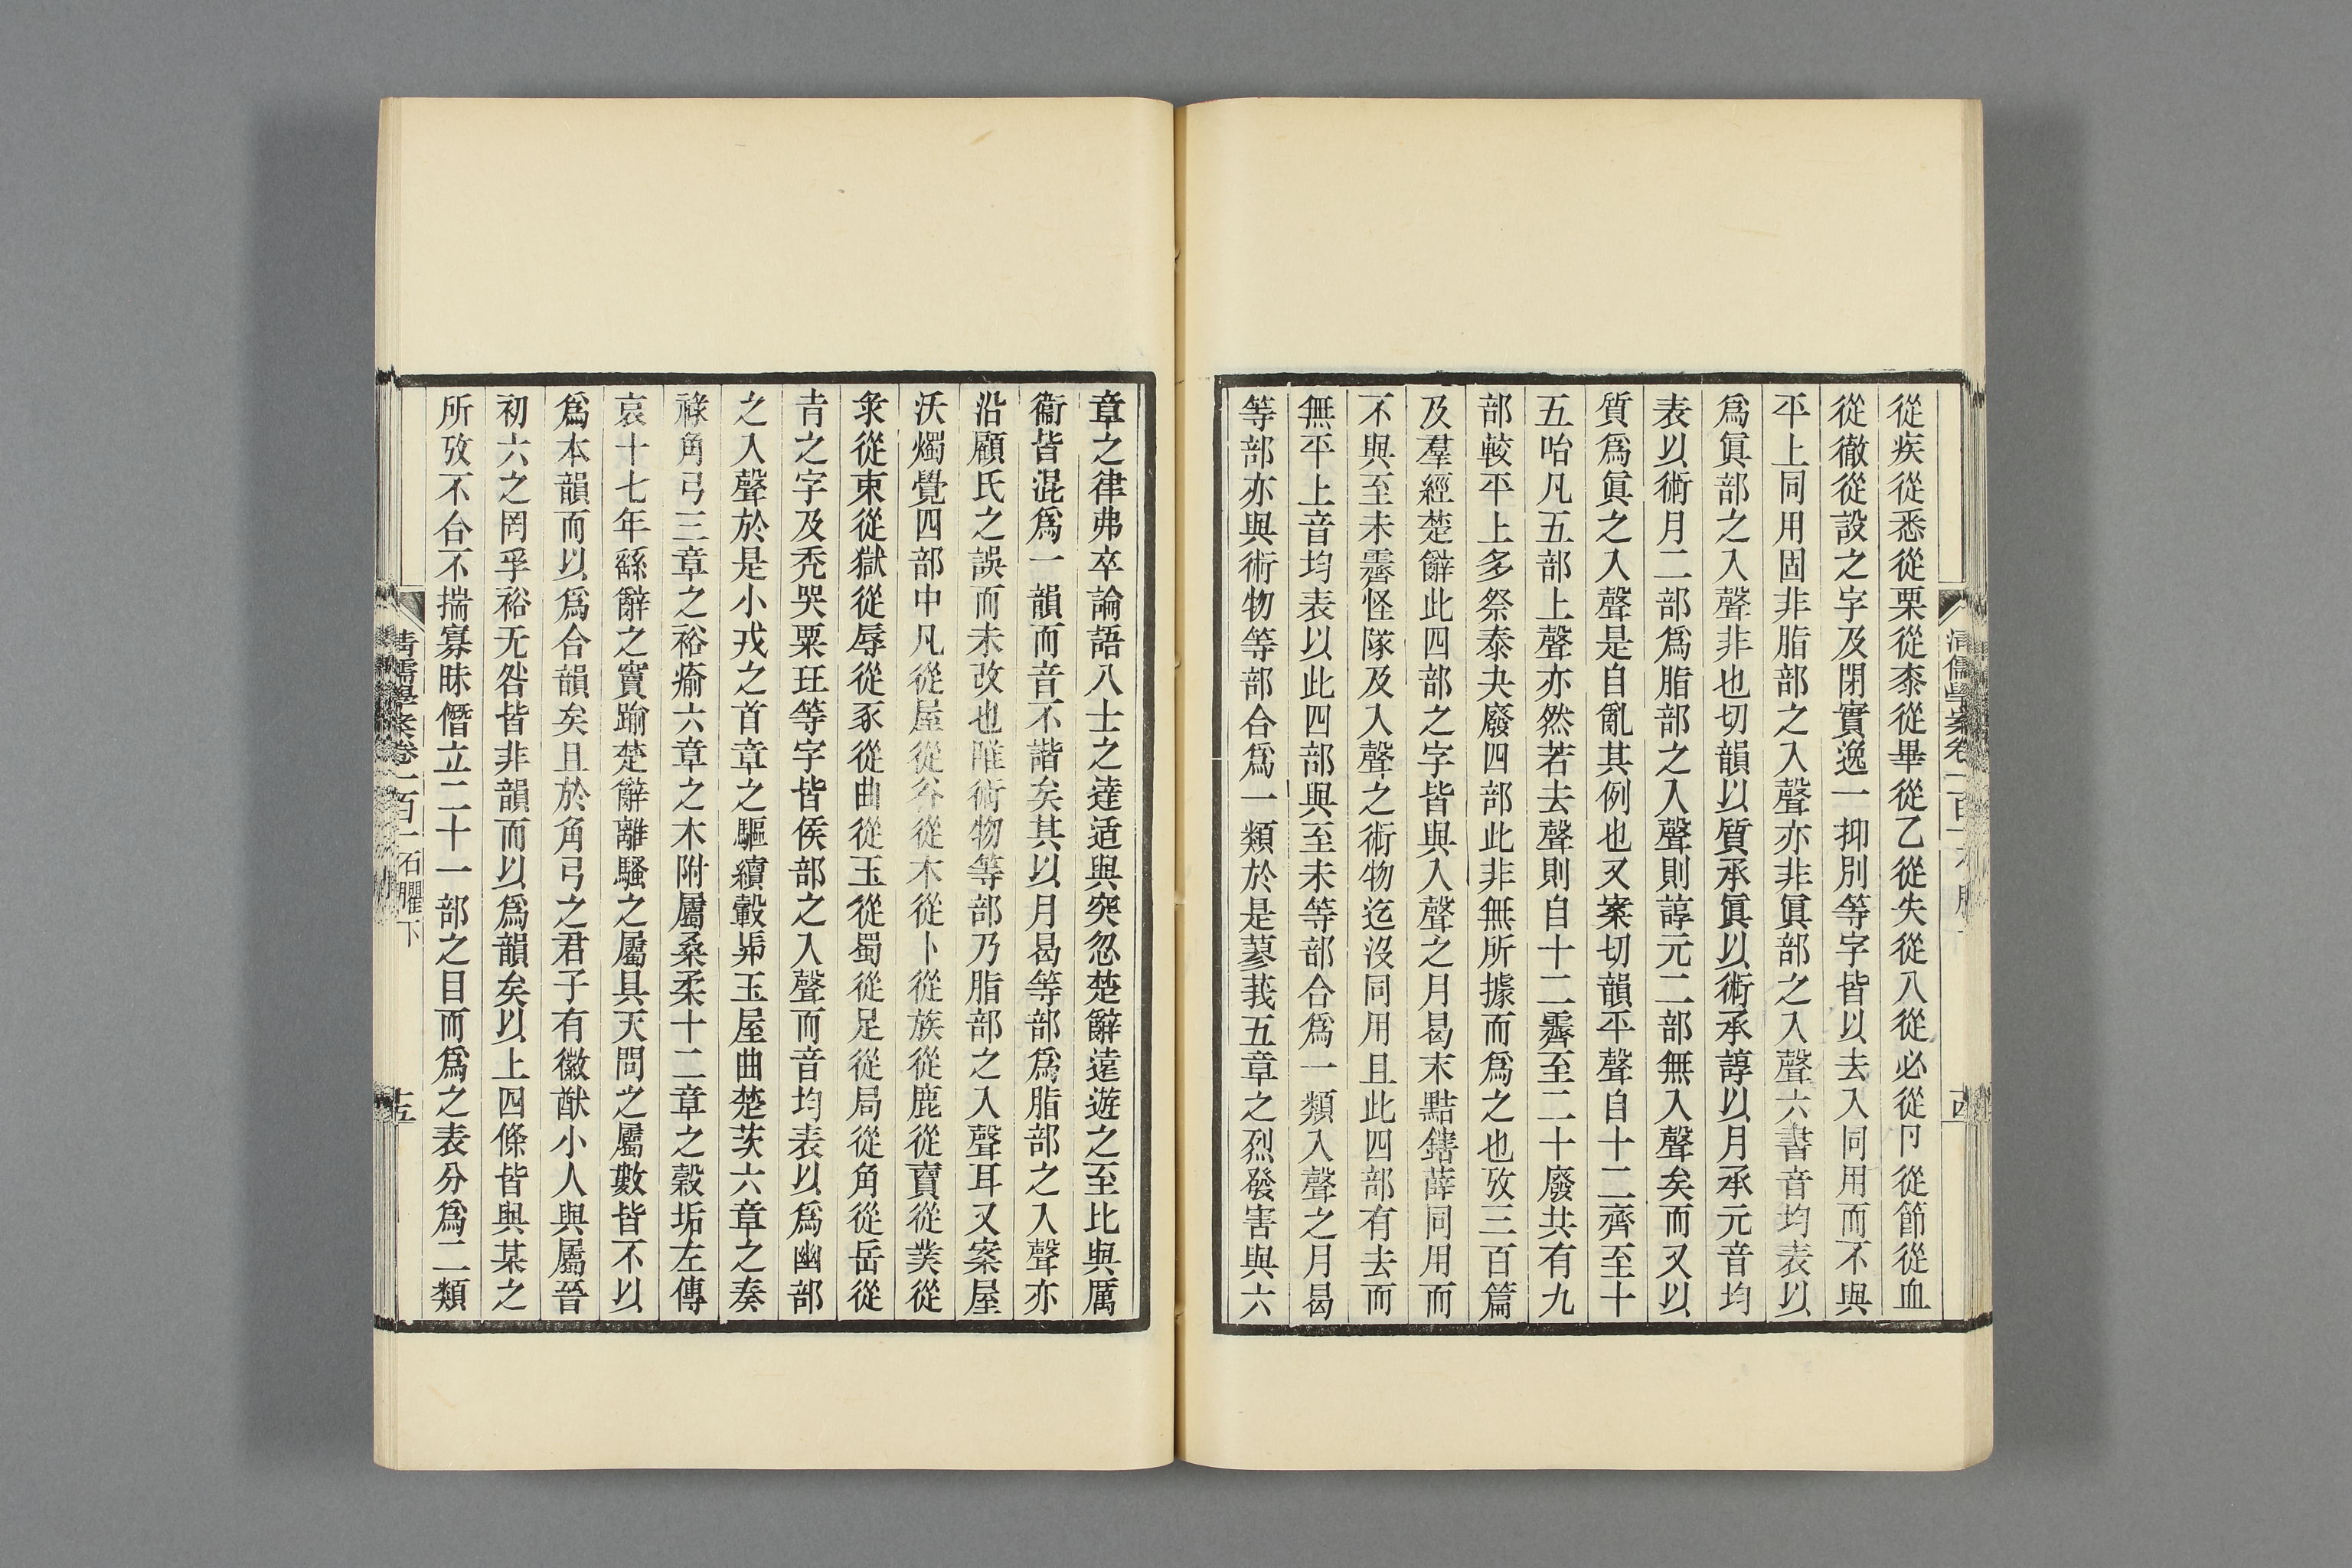 從疾從悉從栗從桼從畢從乙從失從八從必從卪從節從血
從徹從設之字及閉實逸一抑別等字皆以去入同用而不與
平上同用固非脂部之入聲亦非眞部之入聲六書音均表以
爲眞部之入聲非也切韻以質承眞以術承諄以月承元音均
表以術月二部爲脂部之入聲則諄元二部無入聲矣而又以
質爲眞之入聲是自亂其例也又案切韻平聲自十二齊至十
五咍凡五部上聲亦然若去聲則自十二霽至二十廢共有九
部較平上多祭泰夬廢四部此非無所據而爲之也攷三百篇
及羣經楚辭此四部之字皆與入聲之月曷末黠鎋薛同用而
不與至未霽怪隊及入聲之術物迄沒同用且此四部有去而
無平上音均表以此四部與至未等部合爲一類入聲之月曷
等部亦與術物等部合爲一類於是蓼莪五章之烈發害與六
章之律弗卒論語八士之達适與突忽楚辭遠遊之至比與厲
衞皆混爲一韻而音不諧矣其以月曷等部爲脂部之入聲亦
沿顧氏之誤而未改也唯術物等部乃脂部之入聲耳又案屋
沃燭覺四部中凡從屋從谷從木從卜從族從鹿從賣從業從
彔從束從獄從辱從豕從曲從玉從蜀從足從局從角從岳從
𡉉之字及禿哭粟玨等字皆侯部之入聲而音均表以爲幽部
之入聲於是小戎之首章之驅續轂馵玉屋曲楚茨六章之奏
祿角弓三章之裕瘉六章之木附屬桑柔十二章之穀垢左傳
哀十七年繇辭之竇踰楚辭離騷之屬具天問之屬數皆不以
爲本韻而以爲合韻矣且於角弓之君子有徽猷小人與屬晉
初六之罔孚裕无咎皆非韻而以爲韻矣以上四條皆與某之
所攷不合不揣寡昧僭立二十一部之目而爲之表分爲二類
清儒學案卷一百一 石臞下
十五